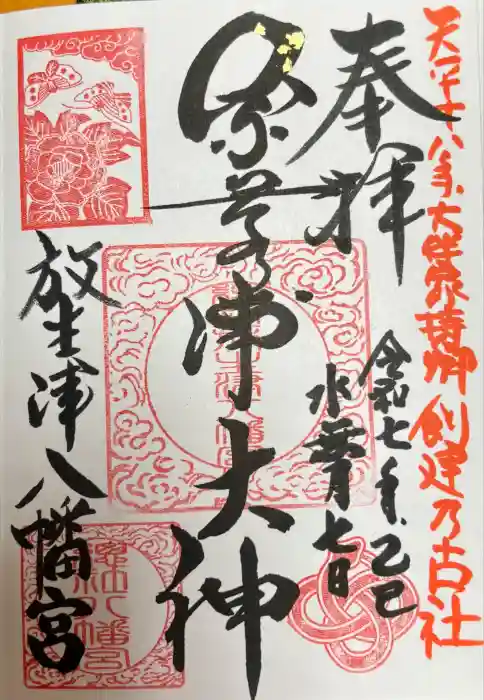 天平十八年、大伴家持卿創建乃古社
奉拝
令和七年、乙巳
水無月七日
奈呉津大神
放生津八幡宮